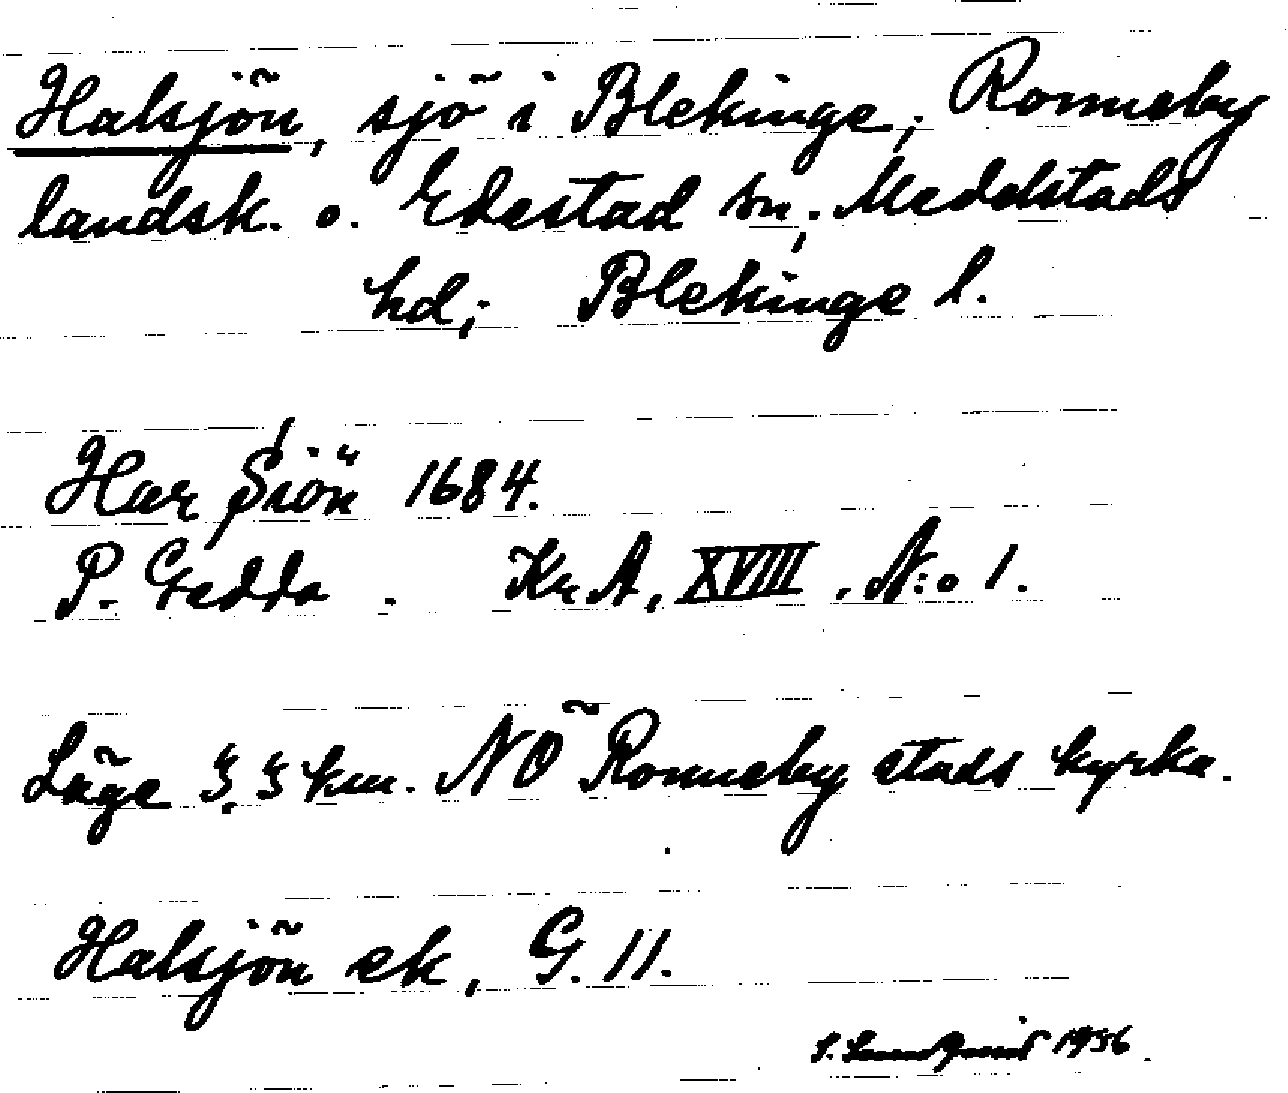 Halsjön, sjö i Blekinge; Ronneby
landsk. o. Edestad sn; Medelstads
hd; Blekinge l.
Har Siön 1684.
P. Gedda. Kr. A, XVIII, N:o 1.
Läge 5.5 km. NÖ Ronneby stads kyrka.
Halsjön ek, G. 11.
S. Lundquist 1956.